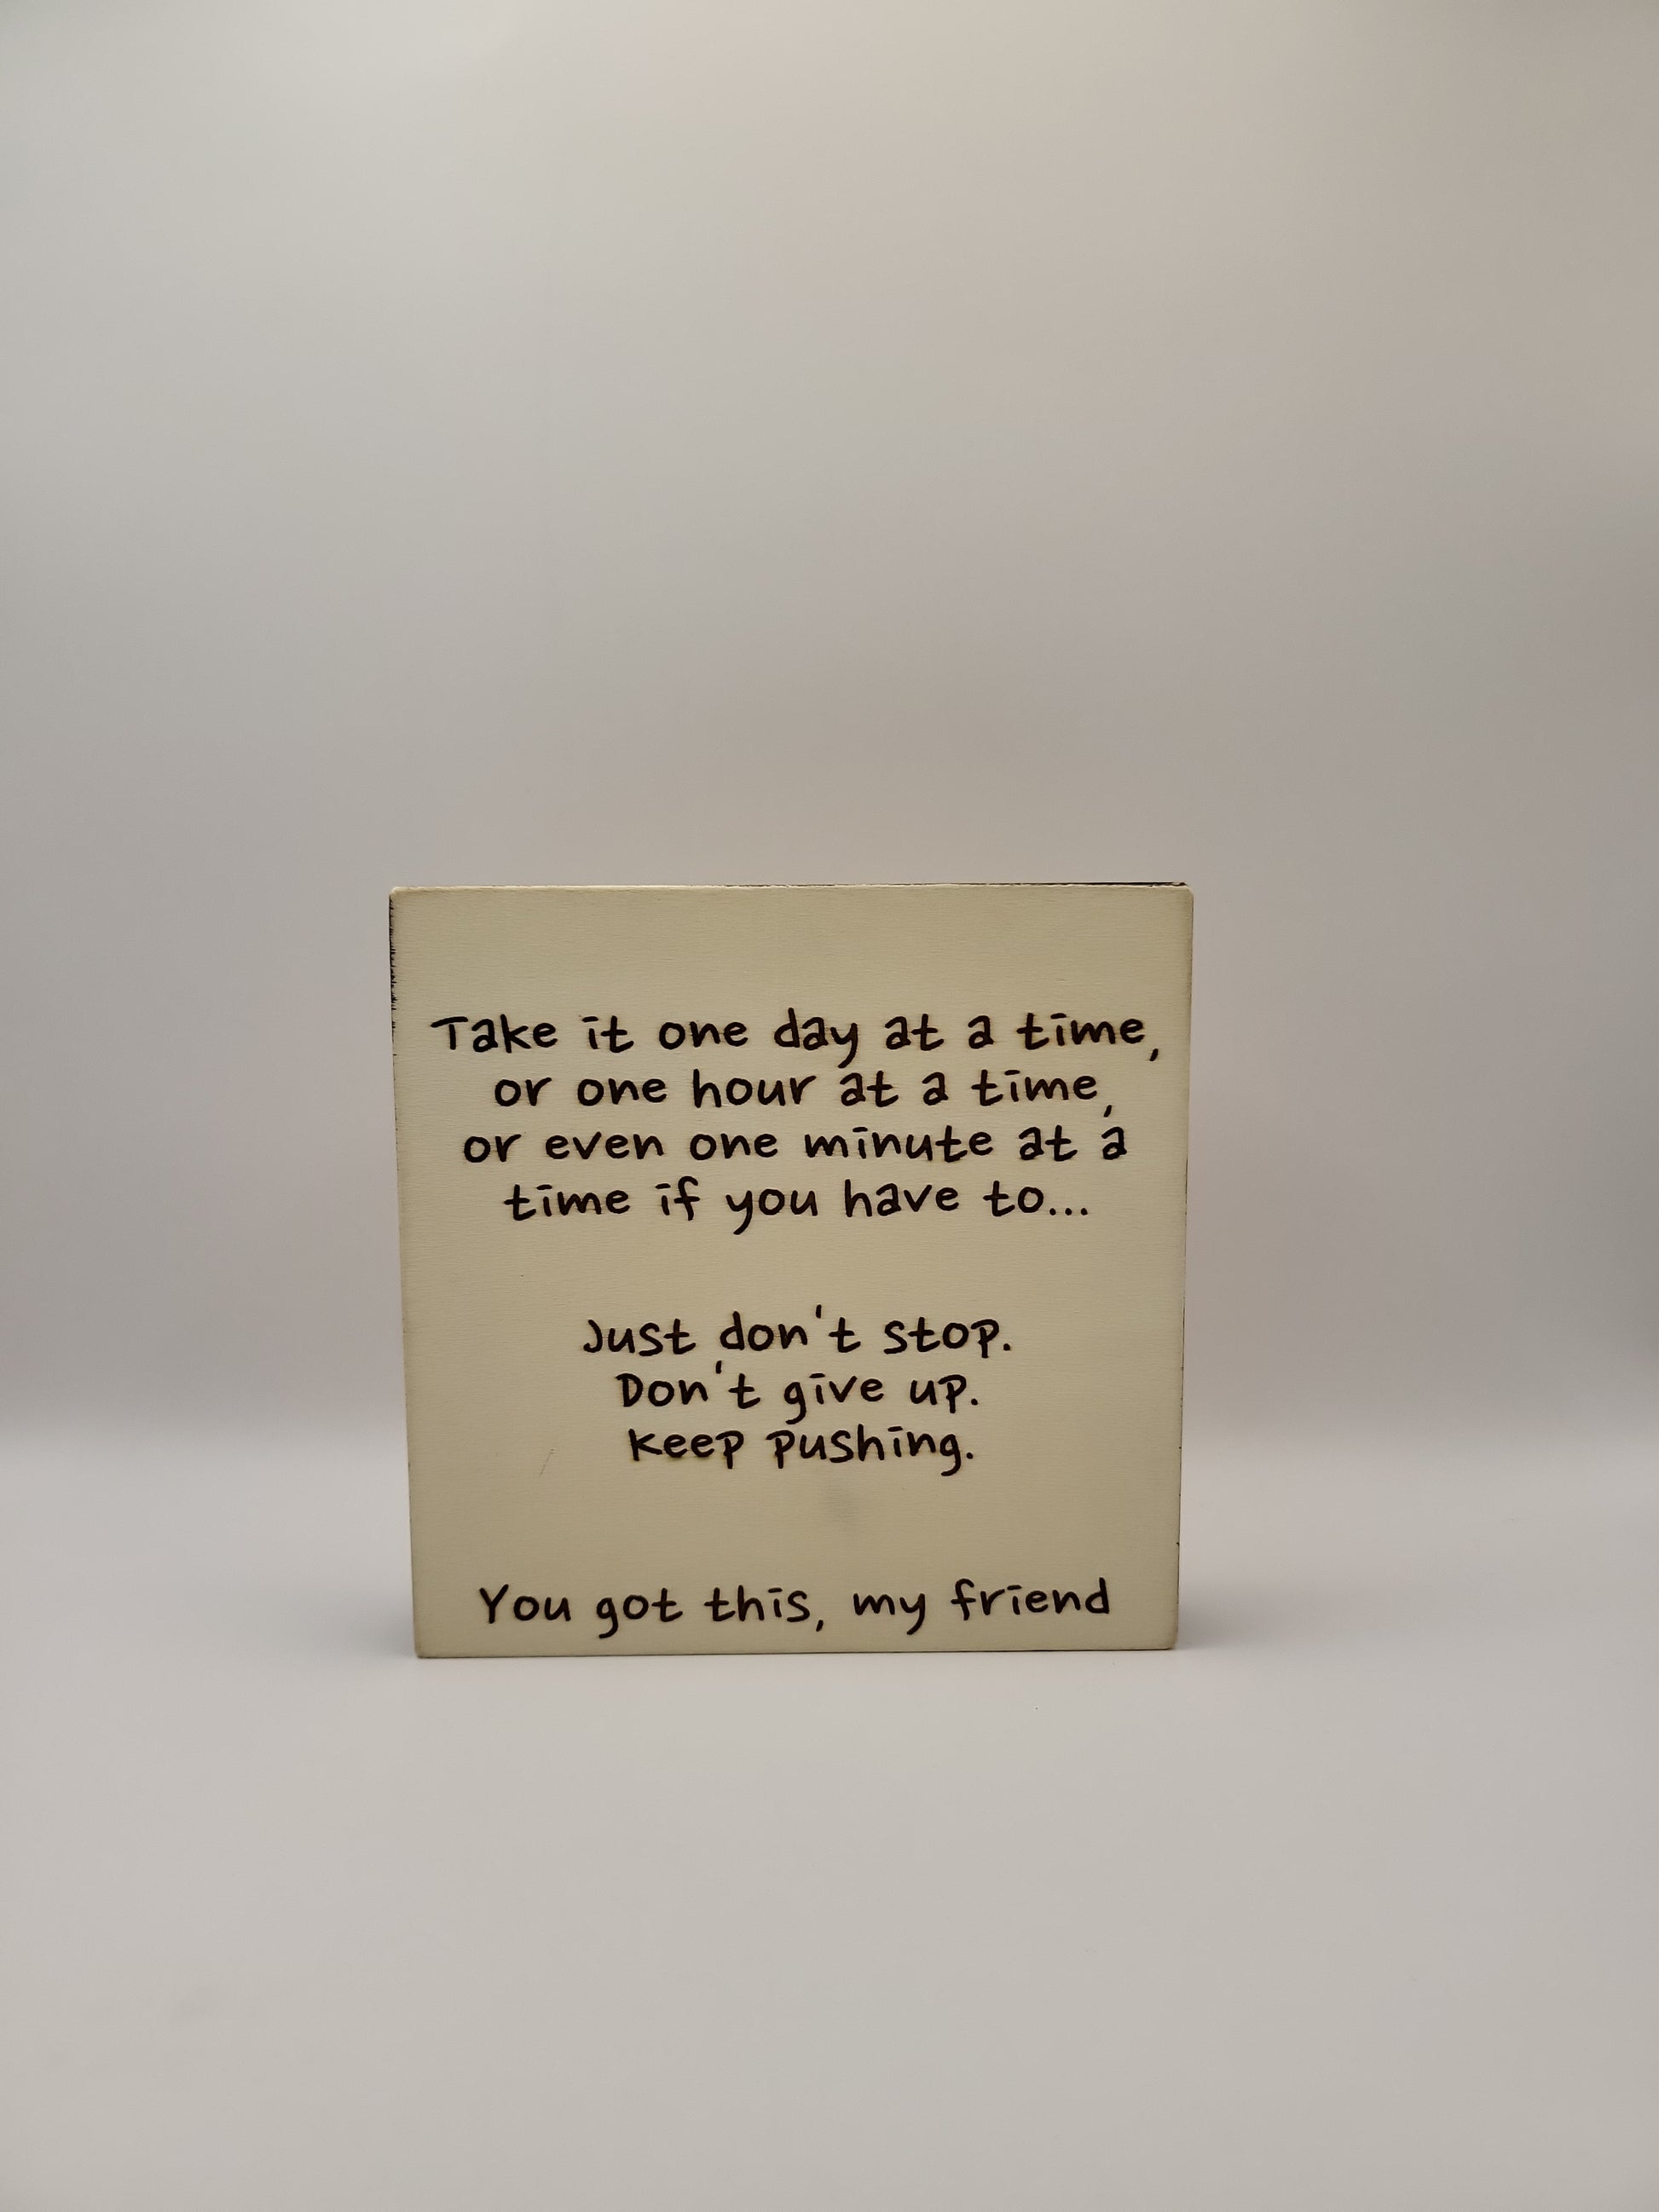 Take it one day at a time,
or one hour at a time,
or even one minute at a
time if you have to...
Just don't stop.
Don't give up.
Keep pushing.
You got this, my friend